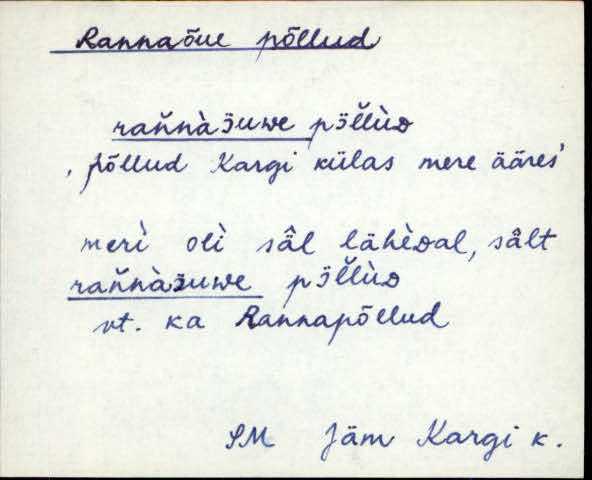 Rannaõue põllud
rañnàɜ̈uwe pɜ̈l̆lùᴅ
‚põllud Kargi külas mere ääres’
merì olì sâl lähèᴅal, sâlt
rañnàɜ̈uwe pɜ̈l̆lùᴅ
vt. ka Rannapõllud
SM Jäm Kargi k.